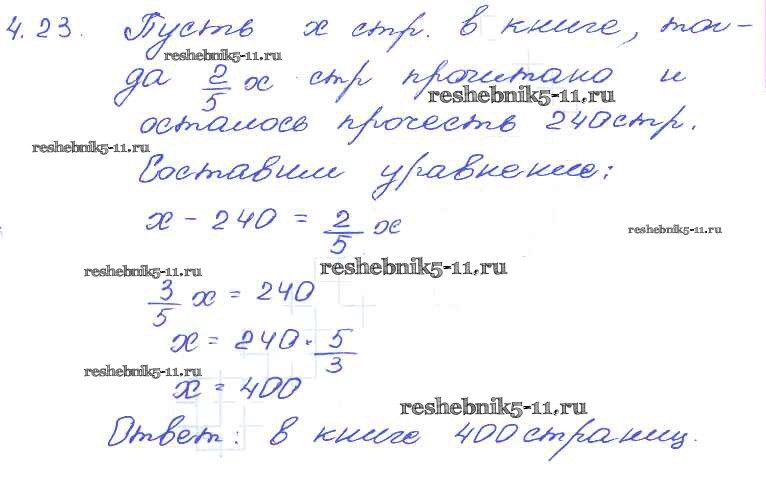 4.23. Пусть x стр. в книге, тог-
reshebnik5-11.ru
да 2/5 x стр прочитано и
reshebnik5-11.ru
осталось прочесть 240 стр.
reshebnik5-11.ru
Составим уравнение:
x - 240 = 2/5 x
reshebnik5-11.ru
reshebnik5-11.ru
reshebnik5-11.ru
3/5 x = 240
x = 240 · 5/3
reshebnik5-11.ru
x = 400
reshebnik5-11.ru
Ответ: в книге 400 страниц.